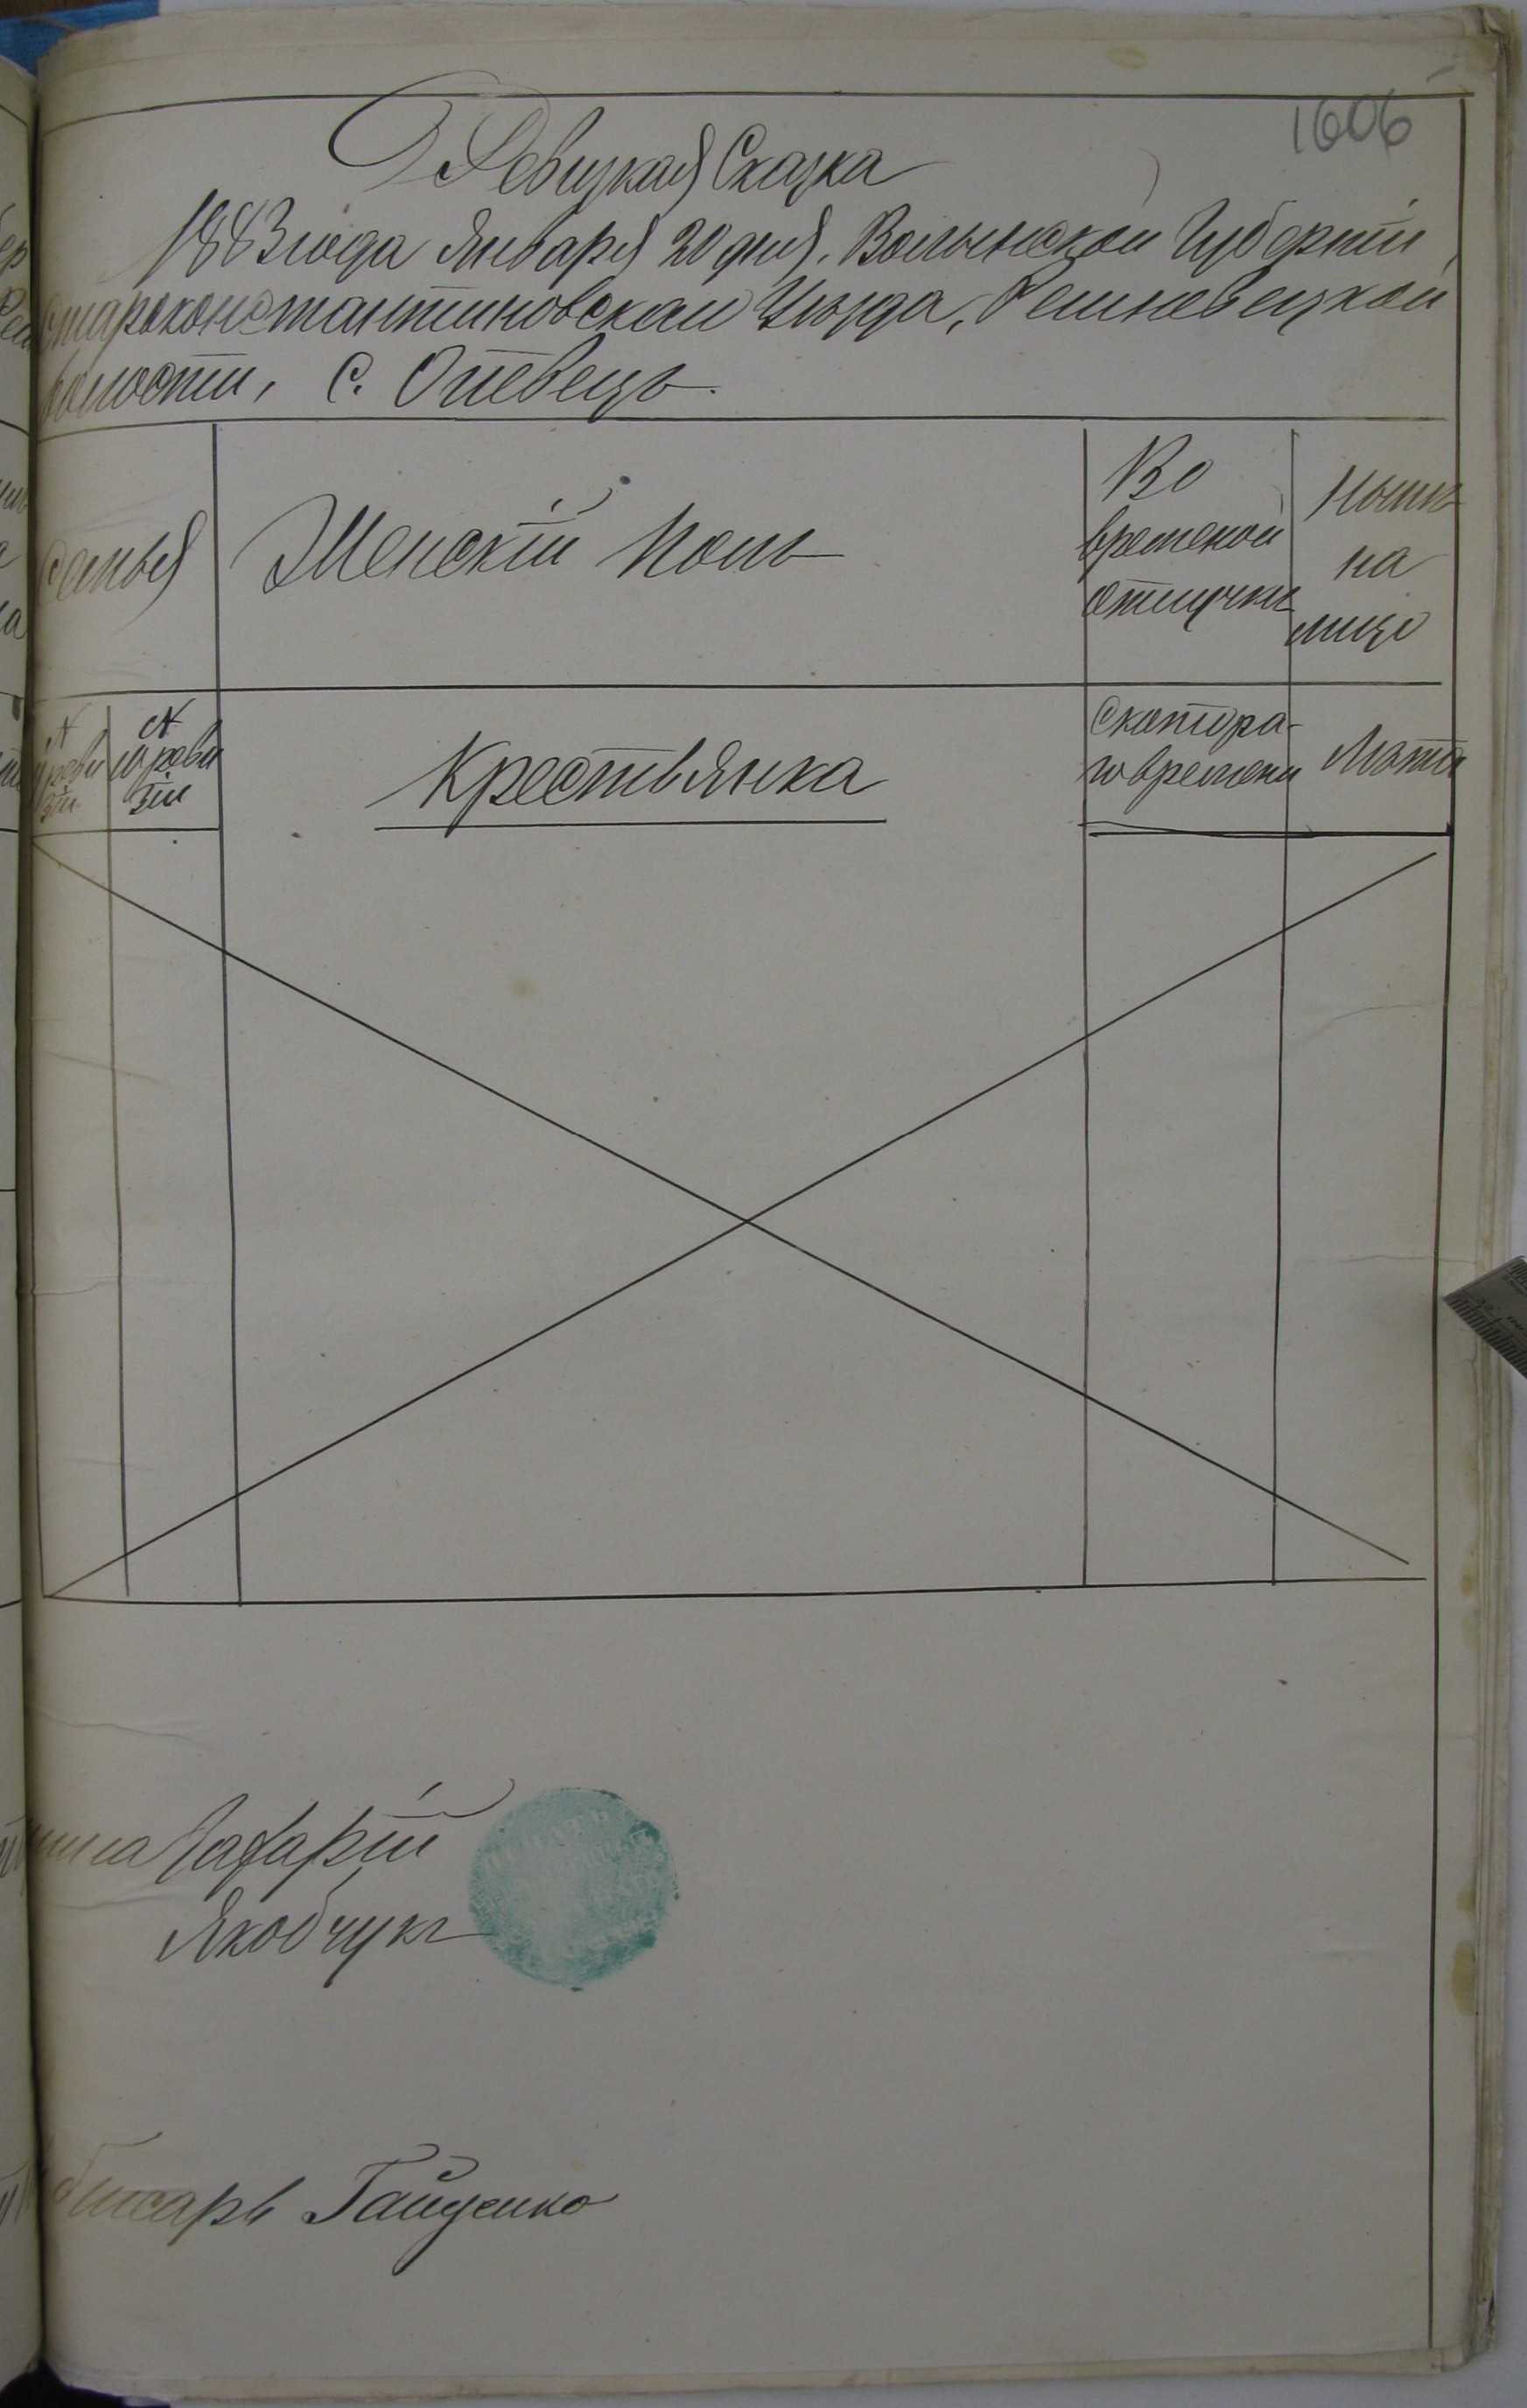 1606
Ревизкая Сказка
1883 года Января 20 дня. Волынской Губернии
Староконстантиновскаго Уѣзда,
волости, С. Опевецъ.
Семья
Женскій Полъ
Во
временой
отлучкѣ
Ныне
на
лицо
№
реви
зіи
№
10 реви
зіи
Крестьянка
Скотора-
го времени
Лѣта
Захарій
Якобчукъ
Писарь Гайценко